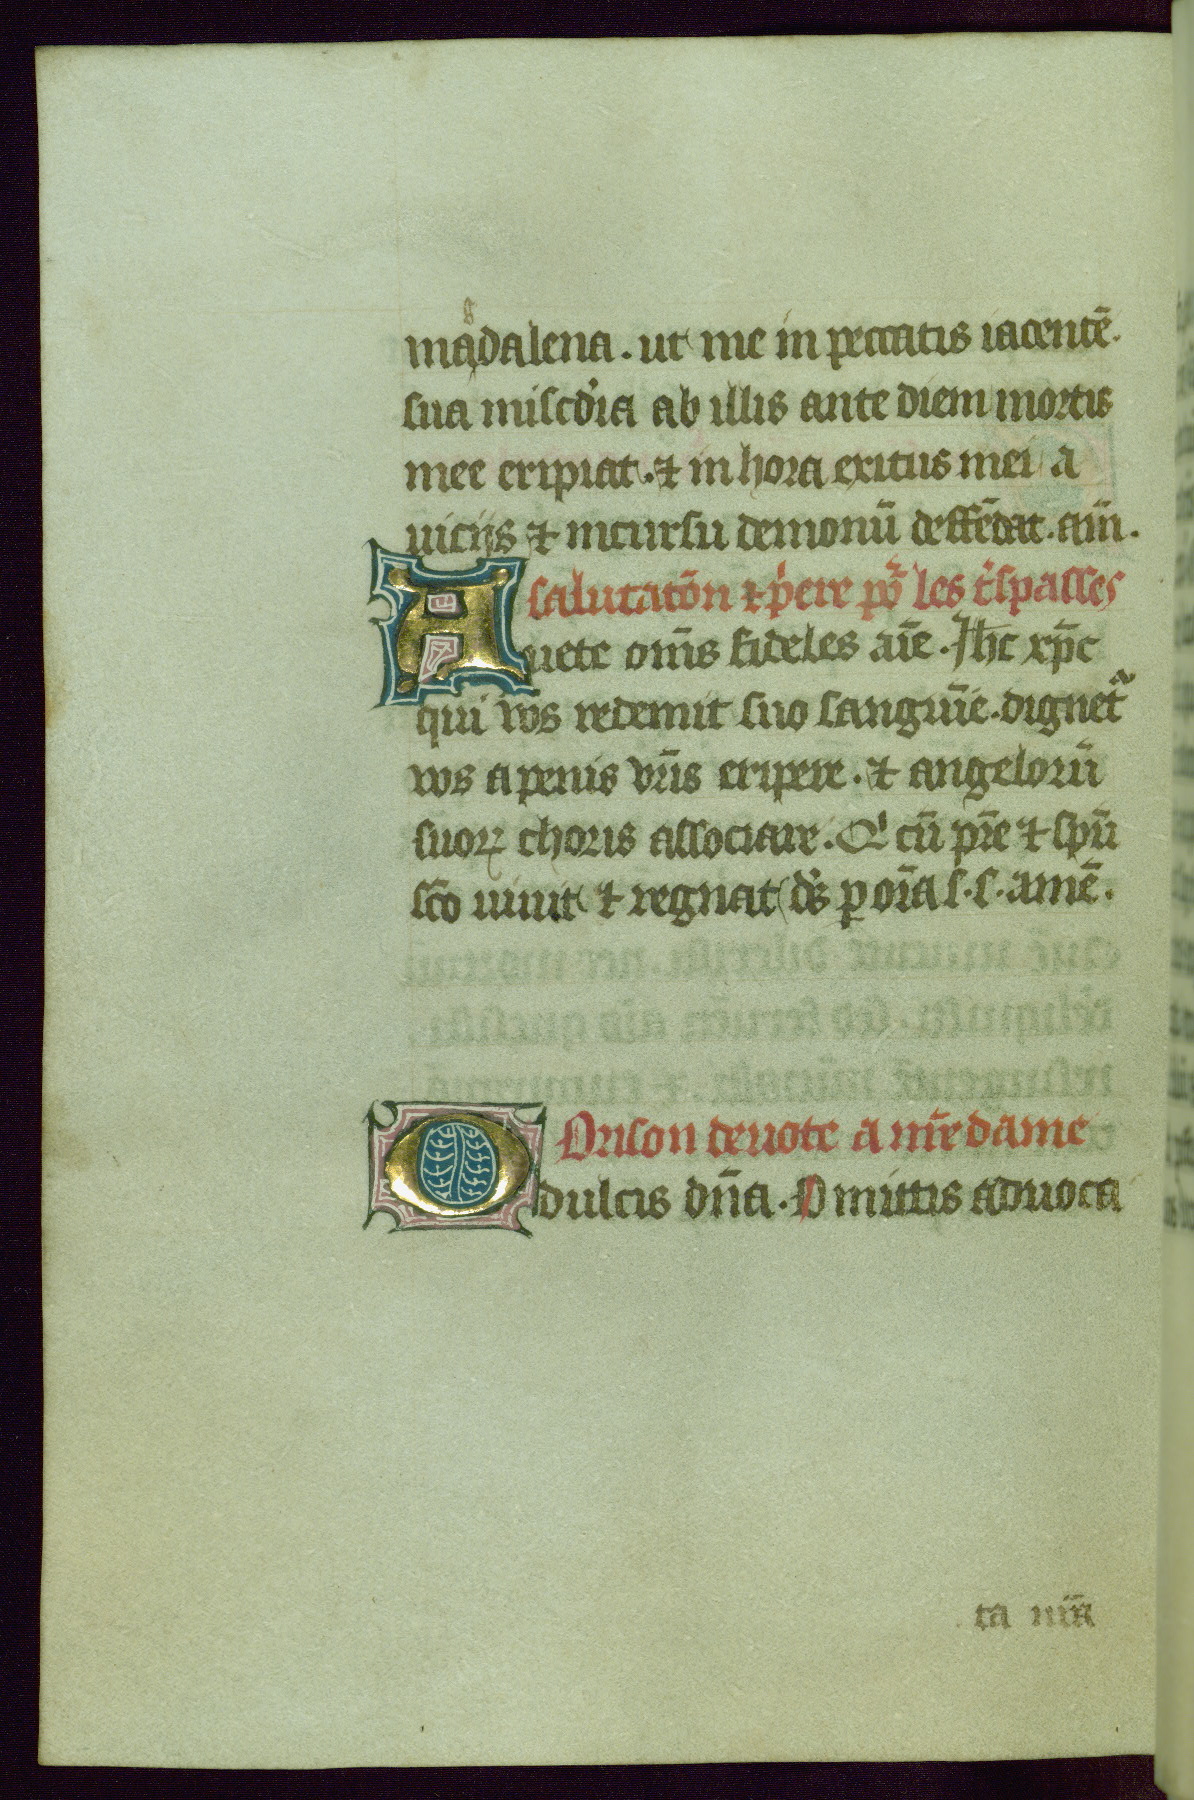 magdalena. ut me in peccatis iacentē.
sua miscd'ia ab illis ante diem mortis
mee eripiat. ⁊ in hora exitus mei a
uicijs ⁊ incursu demonū deffēdat. am̄.
salutatōn ⁊ p'iere po᷑ les t'spasses
Auete om̄s fideles aīe. Jhc xp̄c
qui vos redemit suo sanguīe. dignet᷑
vos a penis vr̄is eripere. ⁊ angelorū
suoꝝ choris associare. Qi cū pr̄e ⁊ spū
sc̄o uiuit ⁊ regnat ds̄ ꝑ oīa s. s. amē.
Orison deuote a nr̄e dame
O dulcis dn̄a. O mittis aduoca
ta nr̄a